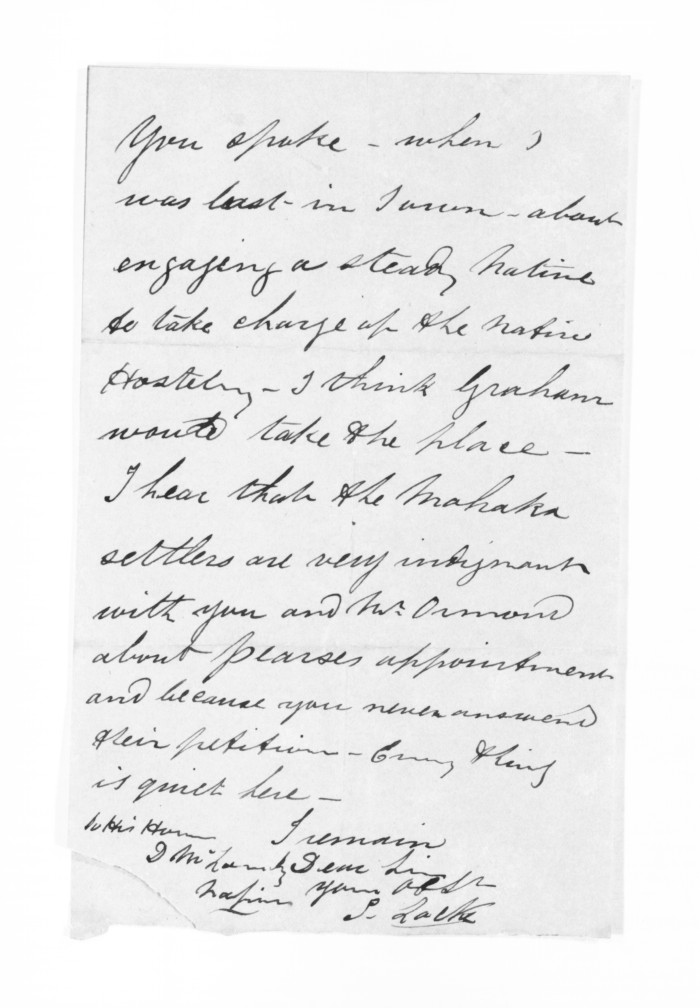 You spoke - when I
was last in Town - about
engaging a steady Native
to take charge of the Native
Hostelry - I think Graham
would take the place -
I hear that the Mohaka
settlers are very indignant
with you and Mr. Ormond
about Pearses appointment
and because you never answered
their petition - Every thing
is quiet here -
I remain
Dear Sir
Your Obt St
S. Locke
To His Honor
D McLean
Napier